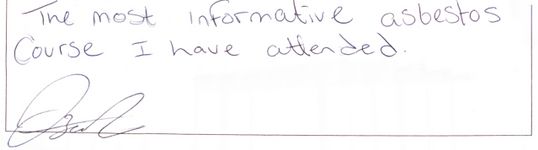 The most informative asbestos
Course I have attended.